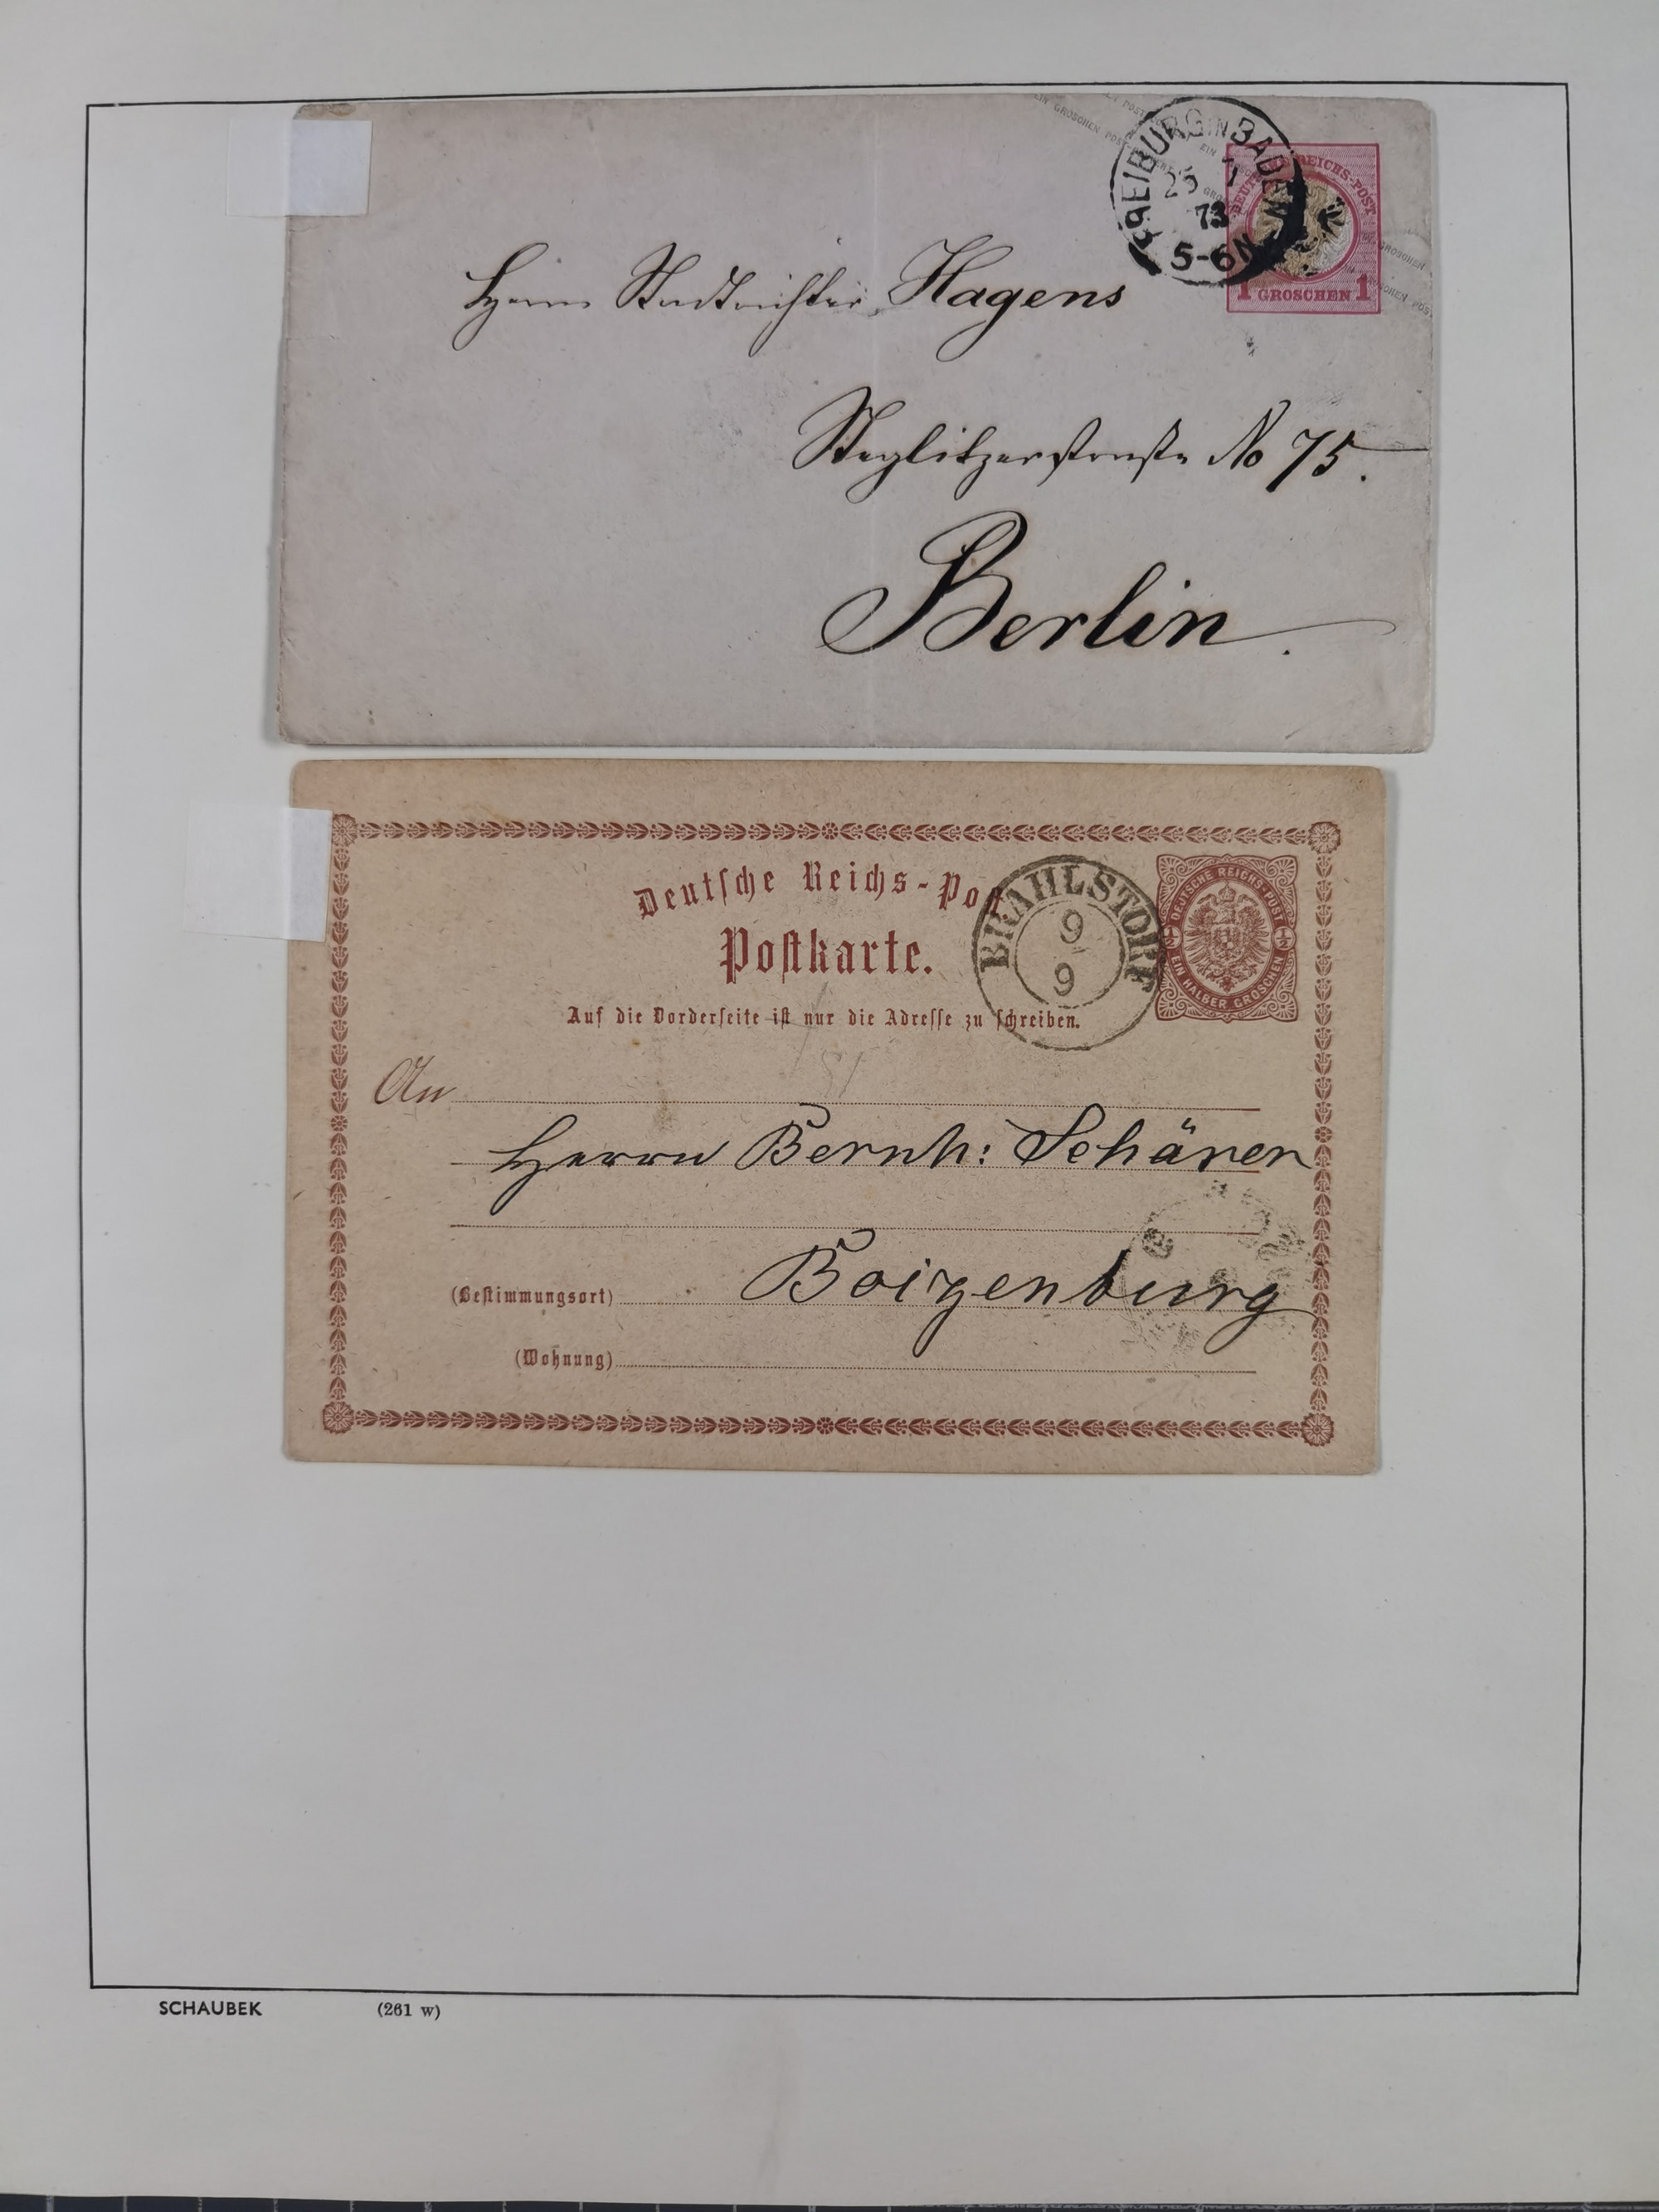 FREIBURG IN BADEN
25 1
73
5-6N
DEUTSCHE REICHS-POST
1 GROSCHEN 1
Herrn Stadtrichter Hagens
Steglitzerstraße No 75.
Berlin.
Deutſche Reichs-Poſt
Poſtkarte.
Auf die Vorderſeite iſt nur die Adreſſe zu ſchreiben.
BRAHLSTORF
9
9
DEUTSCHE REICHS-POST
½ ½
EIN HALBER GROSCHEN
An
Herrn Bernh: Schärer
Boizenburg
(Beſtimmungsort)
(Wohnung)
SCHAUBEK (261 w)